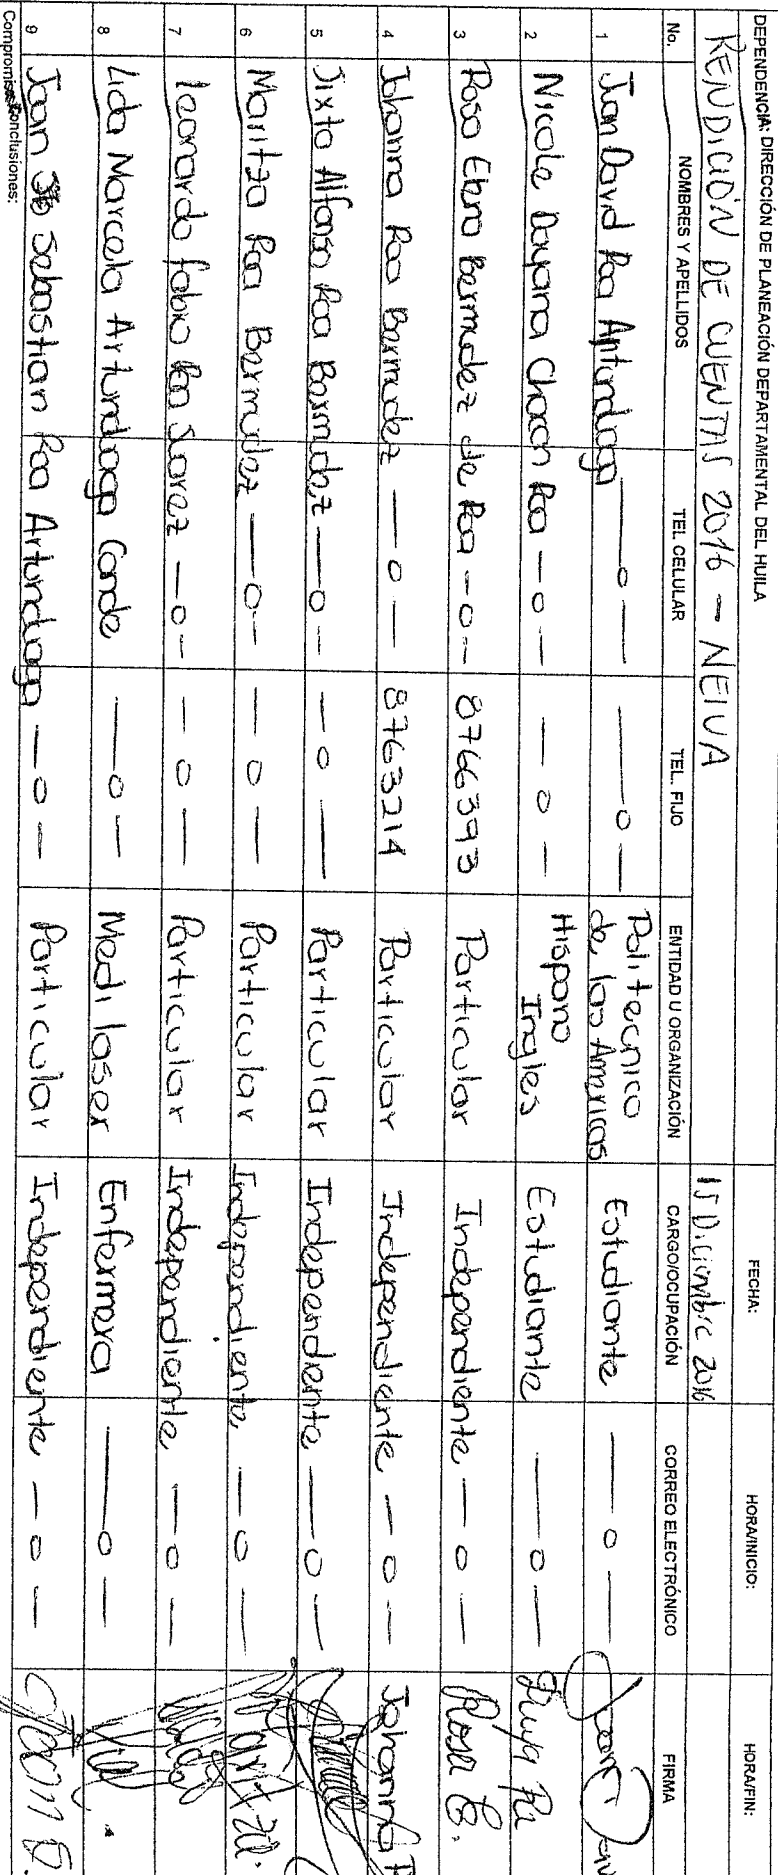 DEPENDENCIA: DIRECCIÓN DE PLANEACIÓN DEPARTAMENTAL DEL HUILA FECHA: HORA/INICIO: HORA/FIN:
RENDICIÓN DE CUENTAS 2016 - NEIVA 15 Diciembre 2016
No. NOMBRES Y APELLIDOS TEL CELULAR TEL. FIJO ENTIDAD U ORGANIZACIÓN CARGO/OCUPACIÓN CORREO ELECTRÓNICO FIRMA
1 Juan David Roa Artunduaga —o— —o— Politecnico de las Americas Estudiante —o—
2 Nicole Dayana Chacon Roa —o— —o— Hispano Ingles Estudiante —o—
3 Rosa Elena Bermudez de Roa —o— 8766393 Particular Independiente —o— Rosa E.
4 Johanna Roa Bermudez —o— 8763214 Particular Independiente —o— Johanna R
5 Sixto Alfonso Roa Bermudez —o— —o— Particular Independiente —o—
6 Maritza Roa Bermudez —o— —o— Particular Independiente —o— Maritza.
7 Leonardo fabio Roa Suarez —o— —o— Particular Independiente —o—
8 Lida Marcela Artunduaga Conde —o— Medilaser Enfermera —o—
9 Joan Sebastian Roa Artunduaga —o— Particular Independiente —o— Joan S.
Compromisos/Conclusiones: